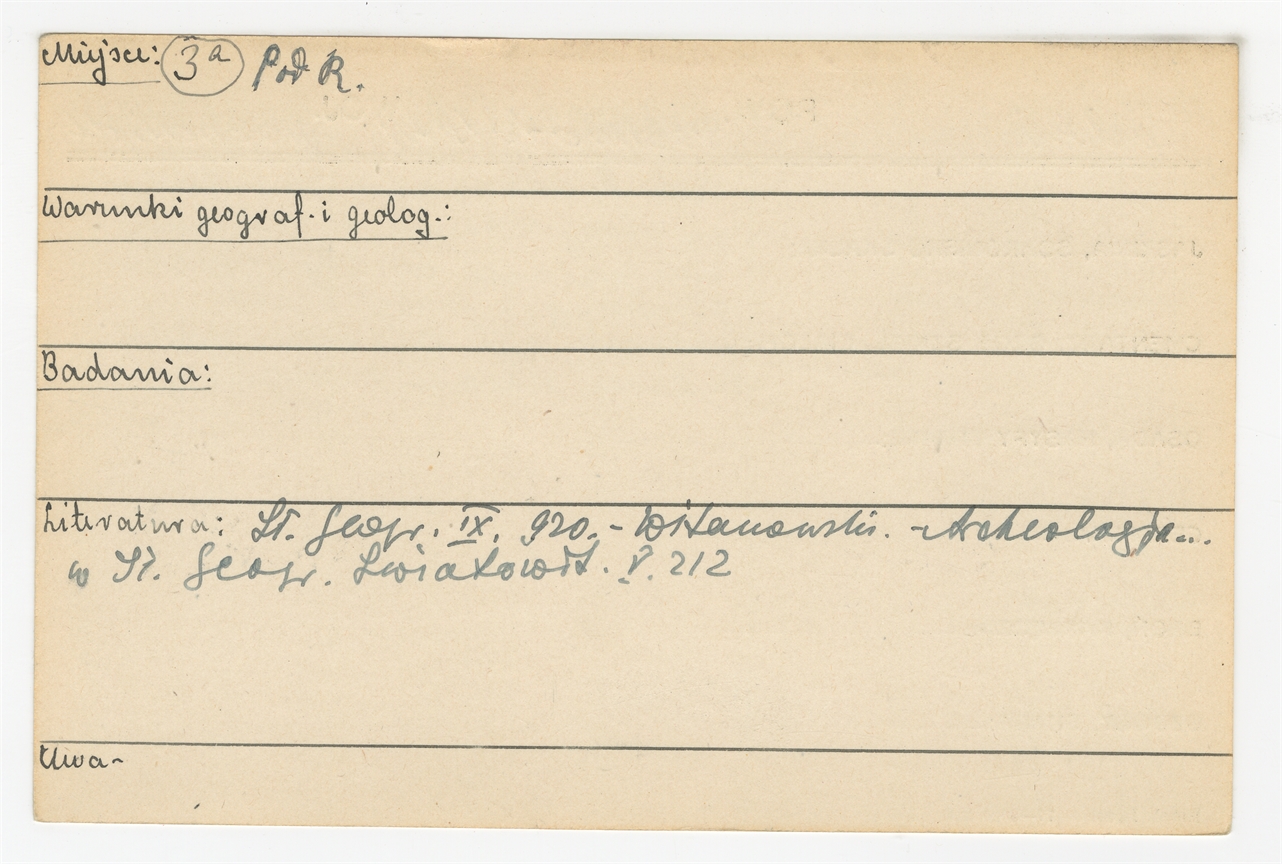 Miejsce: 3a Pod R.
Warunki geograf. i geolog.:
Badania:
Literatura: Sł. Geogr. IX. 920. - Witanowski. - Archeologja...
w Sł. Geogr. Światowit. V. 212
Uwa-